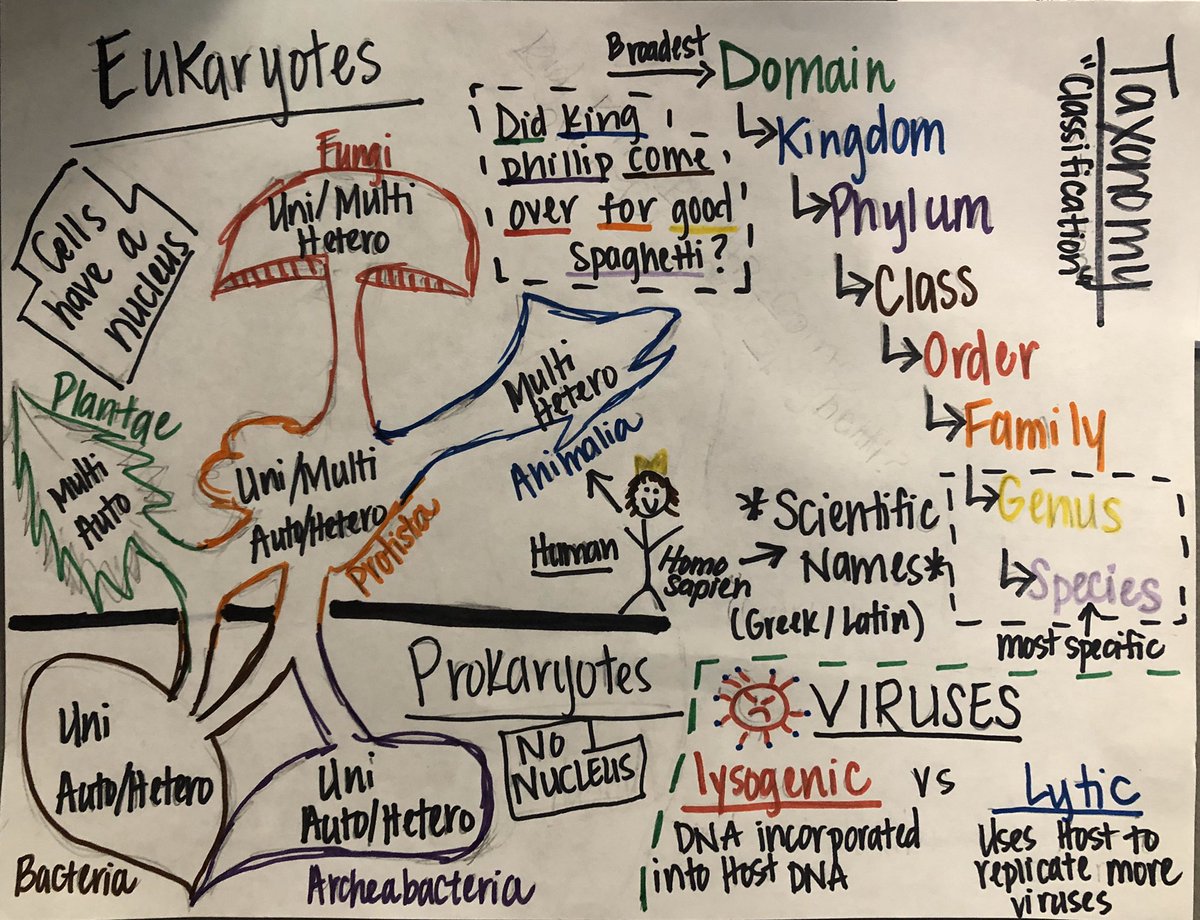 Eukaryotes
Cells
have a
nucleus
Fungi
Uni/Multi
Hetero
Plantae
Multi
Auto
Uni/Multi
Auto/Hetero
Protista
Multi
Hetero
Animalia
Human
Homo
sapien
*Scientific
Names*
(Greek/Latin)
Did King
phillip come
over for good
spaghetti?
Broadest
Domain
Kingdom
Phylum
Class
Order
Family
Genus
Species
most specific
Taxonomy
"Classification"
Prokaryotes
NO
NUCLEUS
Uni
Auto/Hetero
Bacteria
Uni
Auto/Hetero
Archeabacteria
VIRUSES
lysogenic vs Lytic
DNA incorporated
into Host DNA
Uses Host to
replicate more
viruses